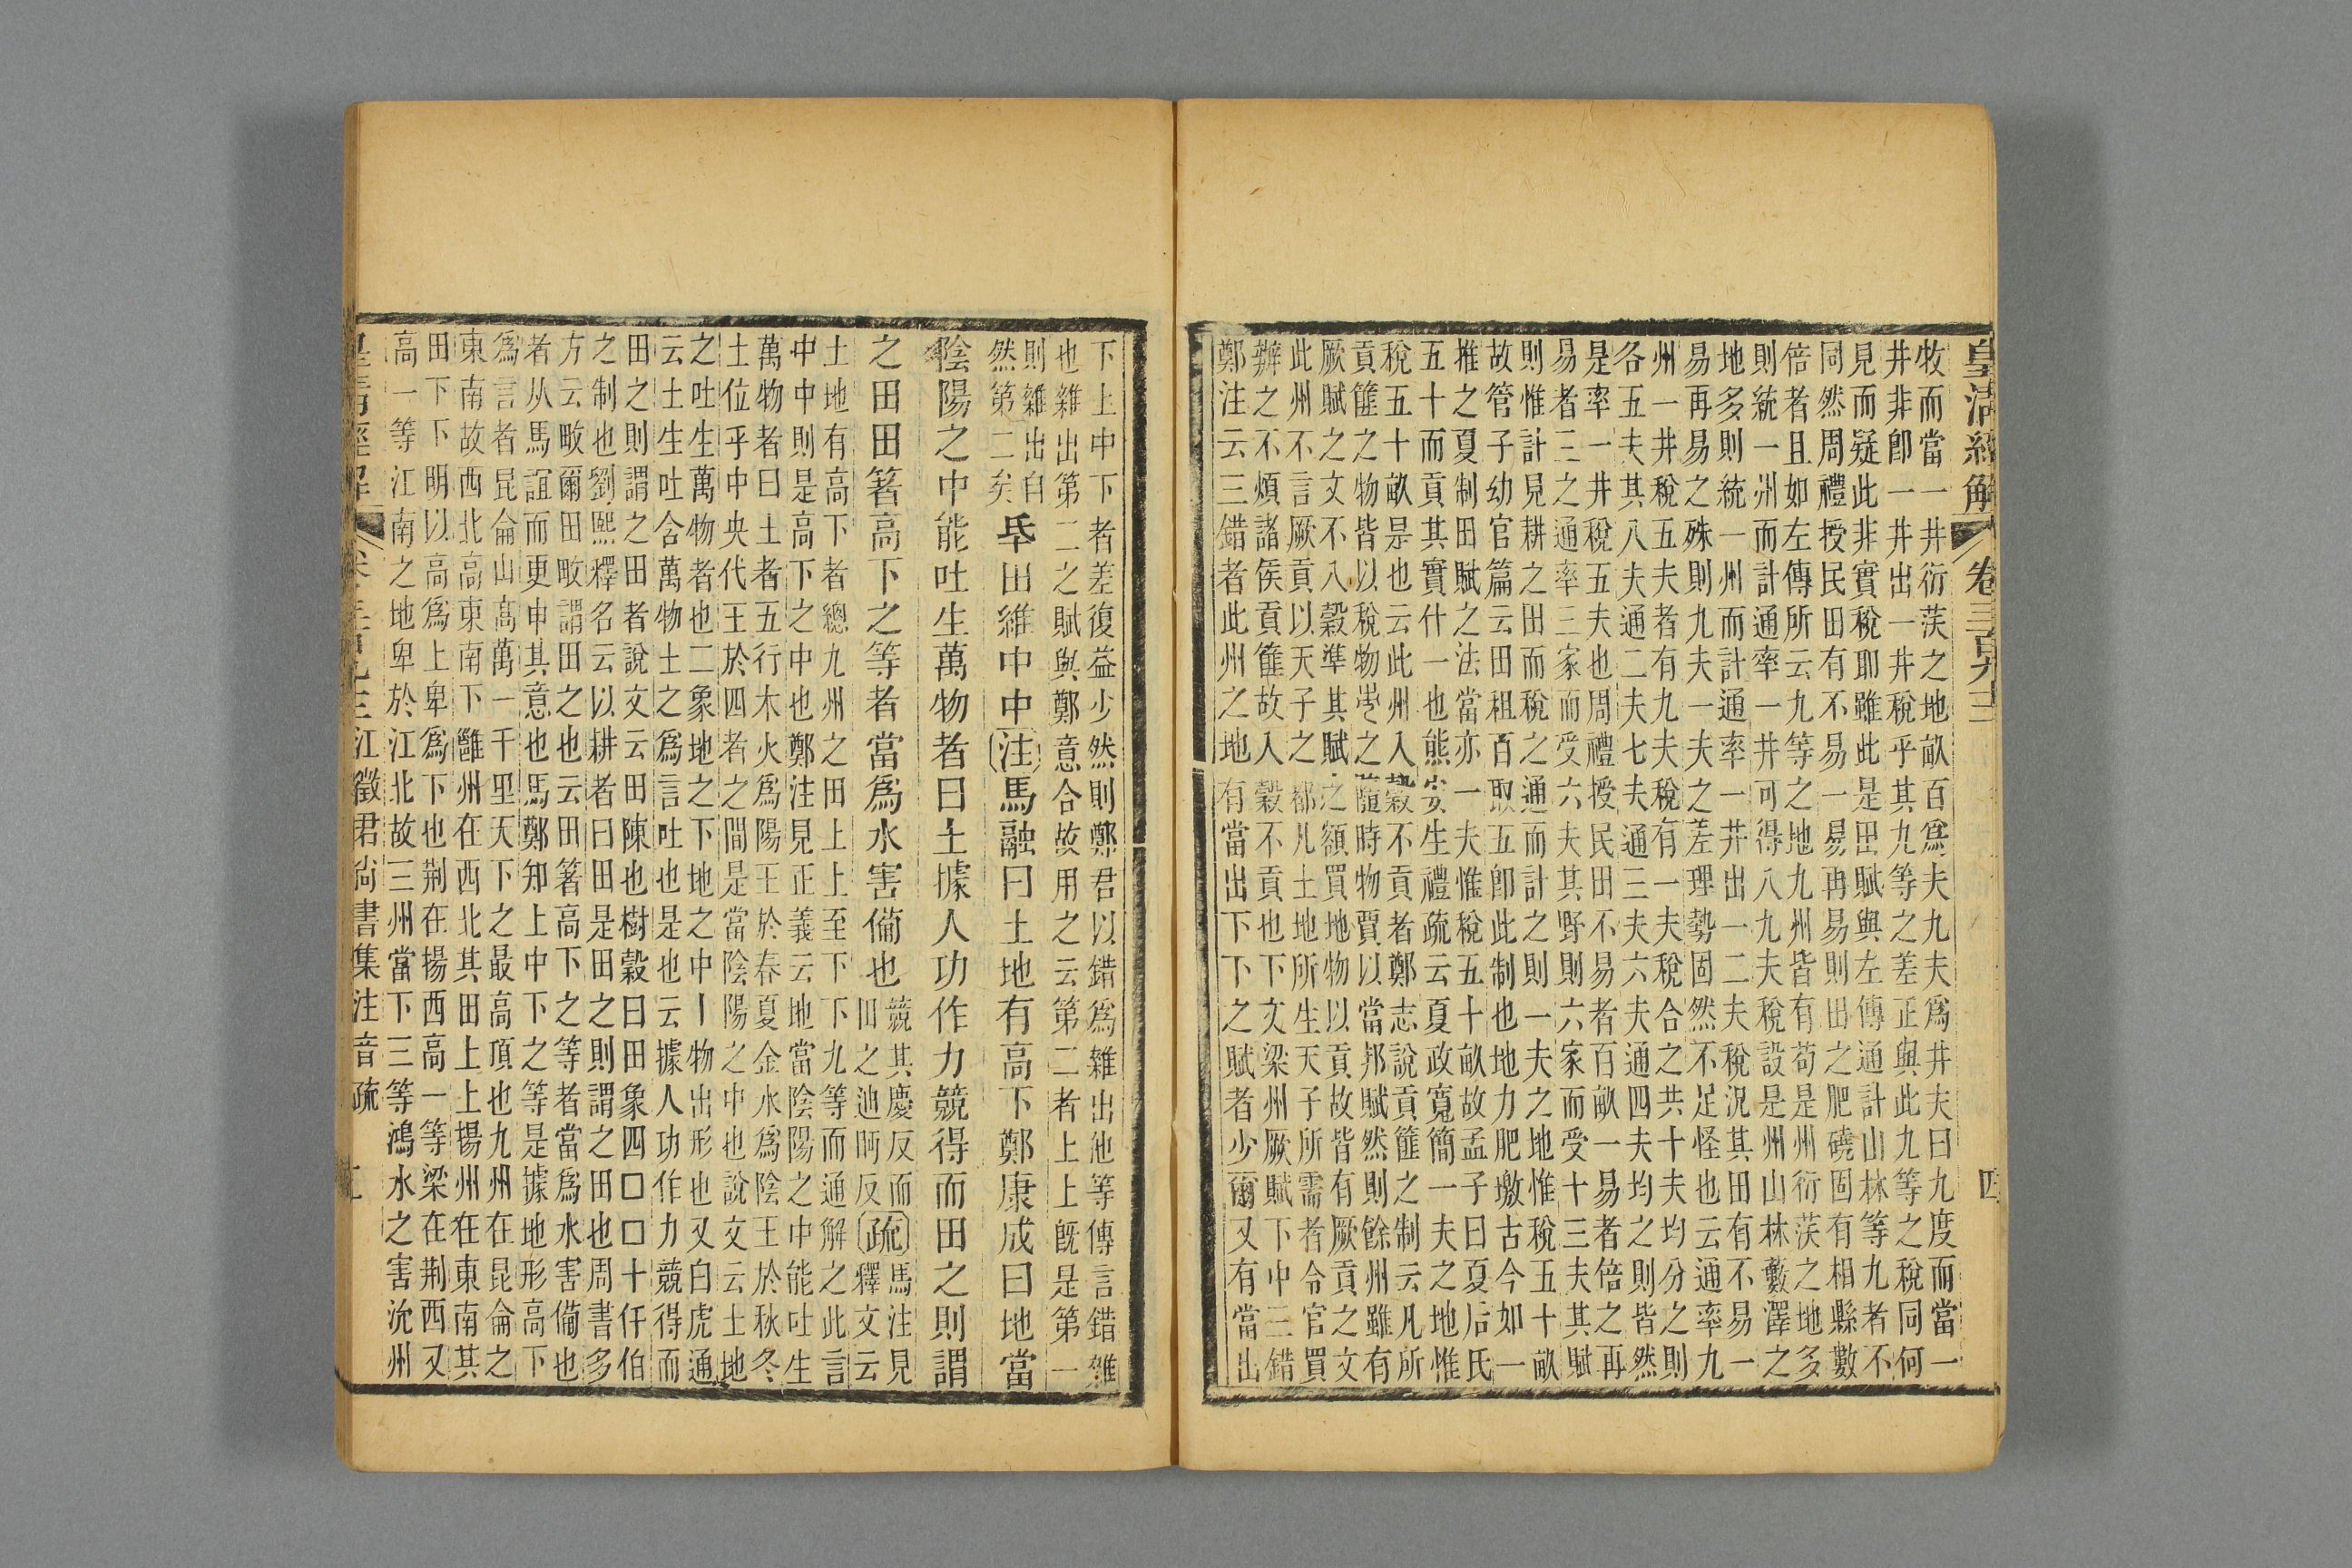 皇清經解 卷三百九三 四
牧而當一井衍茨之地畝百爲夫九夫爲井夫曰九度而當一
井非卽一井出一井稅乎其九等之差正與此九等之稅同何
見而疑此非實稅耶雖此是田賦與左傳通計山林等九者不
同然周禮授民田有不易一易再易則田之肥磽固有相縣數
倍者且如左傳所云九等之地九州皆有苟是州衍茨之地多
則統一州而計通率一井可得八九夫稅設是州山林藪澤之
地多則統一州而計通率一井出一二夫稅況其田有不易一
易再易之殊則九夫一夫之差理勢固然不足怪也云通率九
州一井稅五夫者有九夫稅有一夫稅合之共十夫均分之則
各五夫其八夫通二夫七夫通三夫六夫通四夫均之則皆然
是率一井稅五夫也周禮授民田不易者百畝一易者倍之再
易者三之通率三家而受六夫其野則六家而受十三夫其賦
則惟計見耕之田而稅之通而計之則一夫之地惟稅五十畝
故管子幼官篇云田租百取五卽此制也地力肥墩古今如一
推之夏制田賦之法當亦一夫惟稅五十畝故孟子曰夏后氏
五十而貢其實什一也熊安生禮疏云夏政寬簡一夫之地惟
稅五十畝是也云此州入穀不貢者鄭志說貢篚之制云凡所
貢篚之物皆以稅物之隨時物賈以當邦賦然則餘州雖有
厥賦之文不入穀準其賦之額買地物以貢故皆有厥貢之文
此州不言厥貢以天子之都凡土地所生天子所需者令官買
辦之不煩諸侯貢篚故入穀不貢也下文梁州厥賦下中三錯
鄭注云三錯者此州之地有當出下下之賦者少爾又有當出
下上中下者差復益少然則鄭君以錯爲雜出他等傳言錯雜
也雜出第二之賦與鄭意合故用之云第二者上上旣是第一
則雜出自
然第二矣
氒田維中中注馬融曰土地有高下鄭康成曰地當
陰陽之中能吐生萬物者曰土據人功作力競得而田之則謂
之田田著高下之等者當爲水害備也
競其慶反而
田之迪眄反
疏
馬注見
釋文云
土地有高下者總九州之田上上至下下九等而通解之此言
中中則是高下之中也鄭注見正義云地當陰陽之中能吐生
萬物者曰土者五行木火爲陽王於春夏金水爲陰王於秋冬
土位乎中央代王於四者之間是當陰陽之中也說文云土地
之吐生萬物者也二象地之下地之中丨物出形也又白虎通
云土生吐含萬物土之爲言吐也是也云據人功作力競得而
田之則謂之田者說文云田陳也樹穀曰田象四囗囗十仟伯
之制也劉熙釋名云以耕者曰田是田之則謂之田也周書多
方云畋爾田畋謂田之也云田著高下之等者當爲水害備也
者从馬誼而更申其意也馬鄭知上中下之等是據地形高下
爲言者昆侖山高萬一千里天下之最高頂也九州在昆侖之
東南故西北高東南下雝州在西北其田上上揚州在東南其
田下下明以高爲上卑爲下也荆在揚西高一等梁在荆西又
高一等江南之地卑於江北故三州當下三等鴻水之害沇州
皇清經解 卷三百九三 江徵君尚書集注音疏